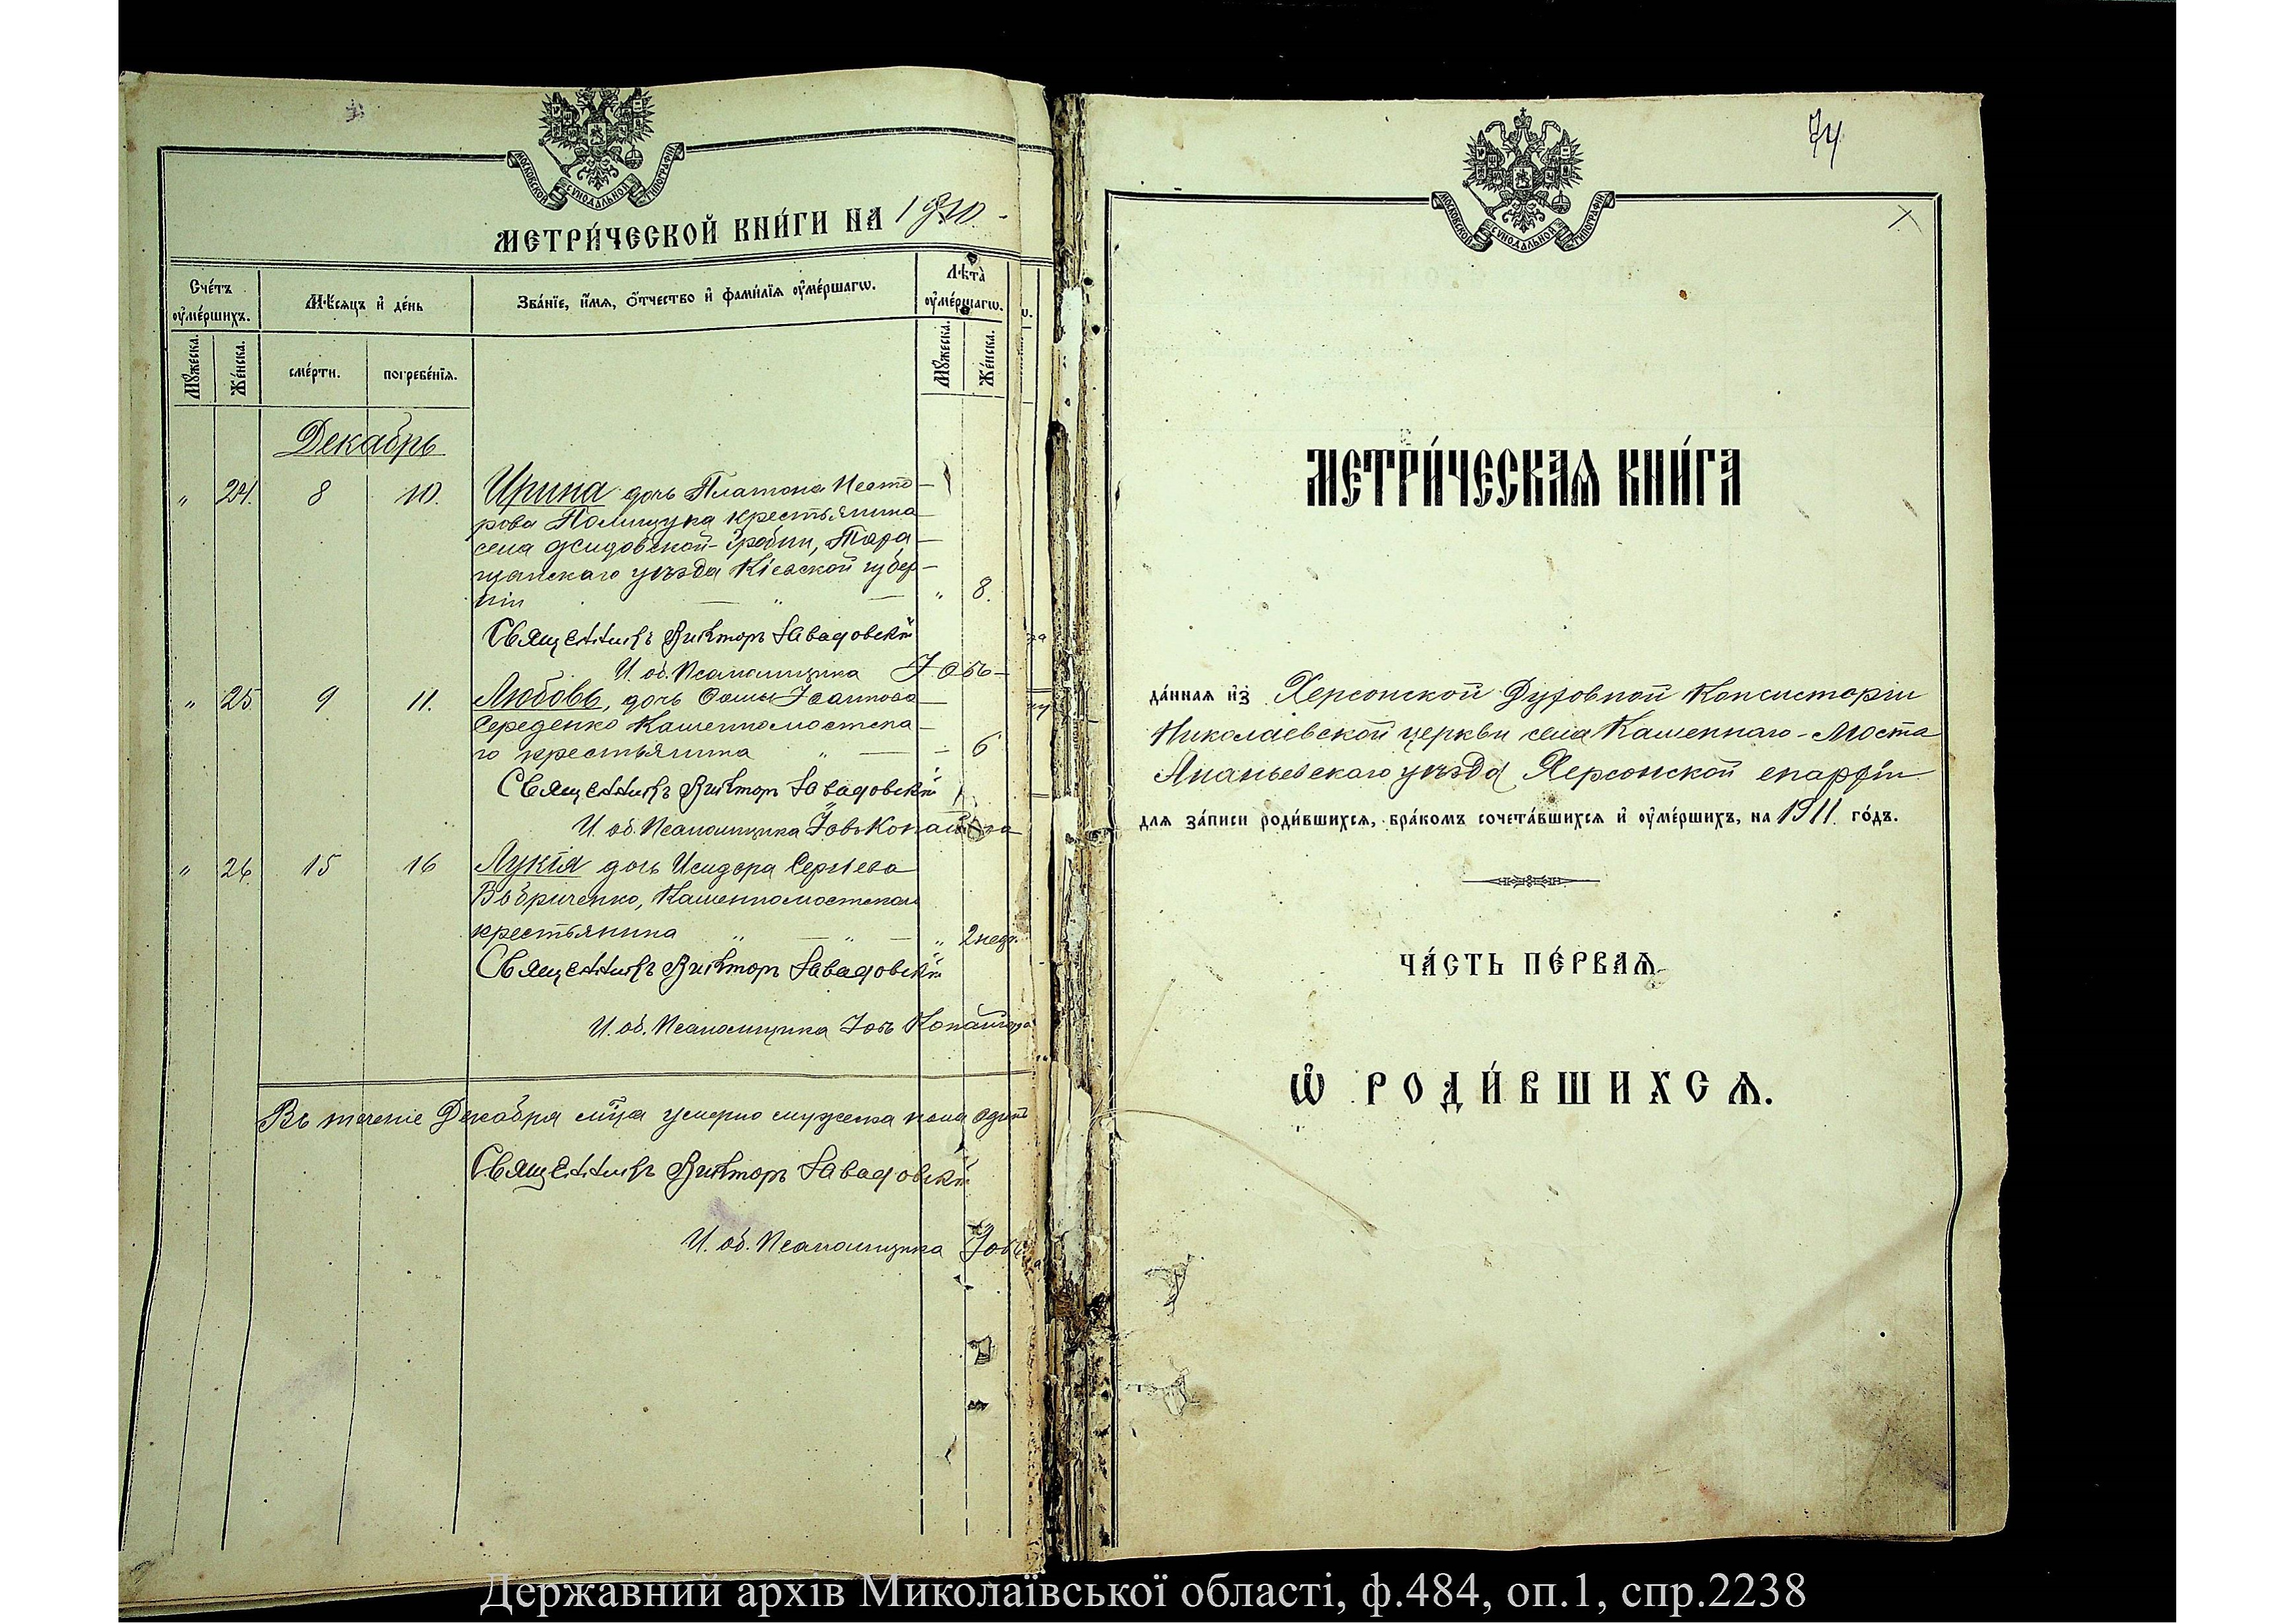 МОСКОВСКОЙ СУНОДАЛЬНОЙ ТИПОГРАФІИ
МЕТРИ́ЧЕСКОЙ КНИ́ГИ НА 1910.
Сче́тъ ᲂу҆ме́ршихъ.
Мѣ́сяцъ и҆ де́нь
Зва́нїе, и҆́мя, ѻ҆́тчество и҆ фами́лїя ᲂу҆ме́ршагѡ.
Лѣ́та ᲂу҆ме́ршагѡ.
Мꙋ́жеска.
Же́нска.
сме́рти.
погребе́нїя.
Мꙋ́жеска.
Же́нска.
Декабрь
" 24. 8 10. Ирина дочь Платона Несто-
рова Полищука крестьянина
села Жидовской-Гробли, Тара-
щанскаго уѣзда Кіевской губер-
ніи " 8.
Священникъ Викторъ Завадовскій
И. об. Псаломщика Іовъ
" 25. 9 11. Любовь, дочь Ѳомы Іоаннова
Середенко Каменномостска-
го крестьянина " 6
Священникъ Викторъ Завадовскій
И. об. Псаломщика Іовъ
" 26. 15 16 Лукія дочь Исидора Сергіева
Каменномостскаго
крестьянина " 2 нед.
Священникъ Викторъ Завадовскій
И. об. Псаломщика Іовъ
Въ теченіе Декабря м-ца умерло мужеска пола одинъ
Священникъ Викторъ Завадовскій
И. об. Псаломщика Іовъ
74
МОСКОВСКОЙ СУНОДАЛЬНОЙ ТИПОГРАФІИ
МЕТРИ́ЧЕСКАѦ КНИ́ГА
да́нная и҆з̾ Херсонской Духовной Консисторіи
Николаевской церкви села Каменнаго-Моста
Ананьевскаго уѣзда Херсонской епархіи
для за́писи роди́вшихся, бра́комъ сочета́вшихся и҆ ᲂу҆ме́ршихъ, на 1911. го́дъ.
ЧА́СТЬ ПЕ́РВАѦ
Ѡ҆ РОДИ́ВШИХСѦ.
Державний архів Миколаївської області, ф.484, оп.1, спр.2238